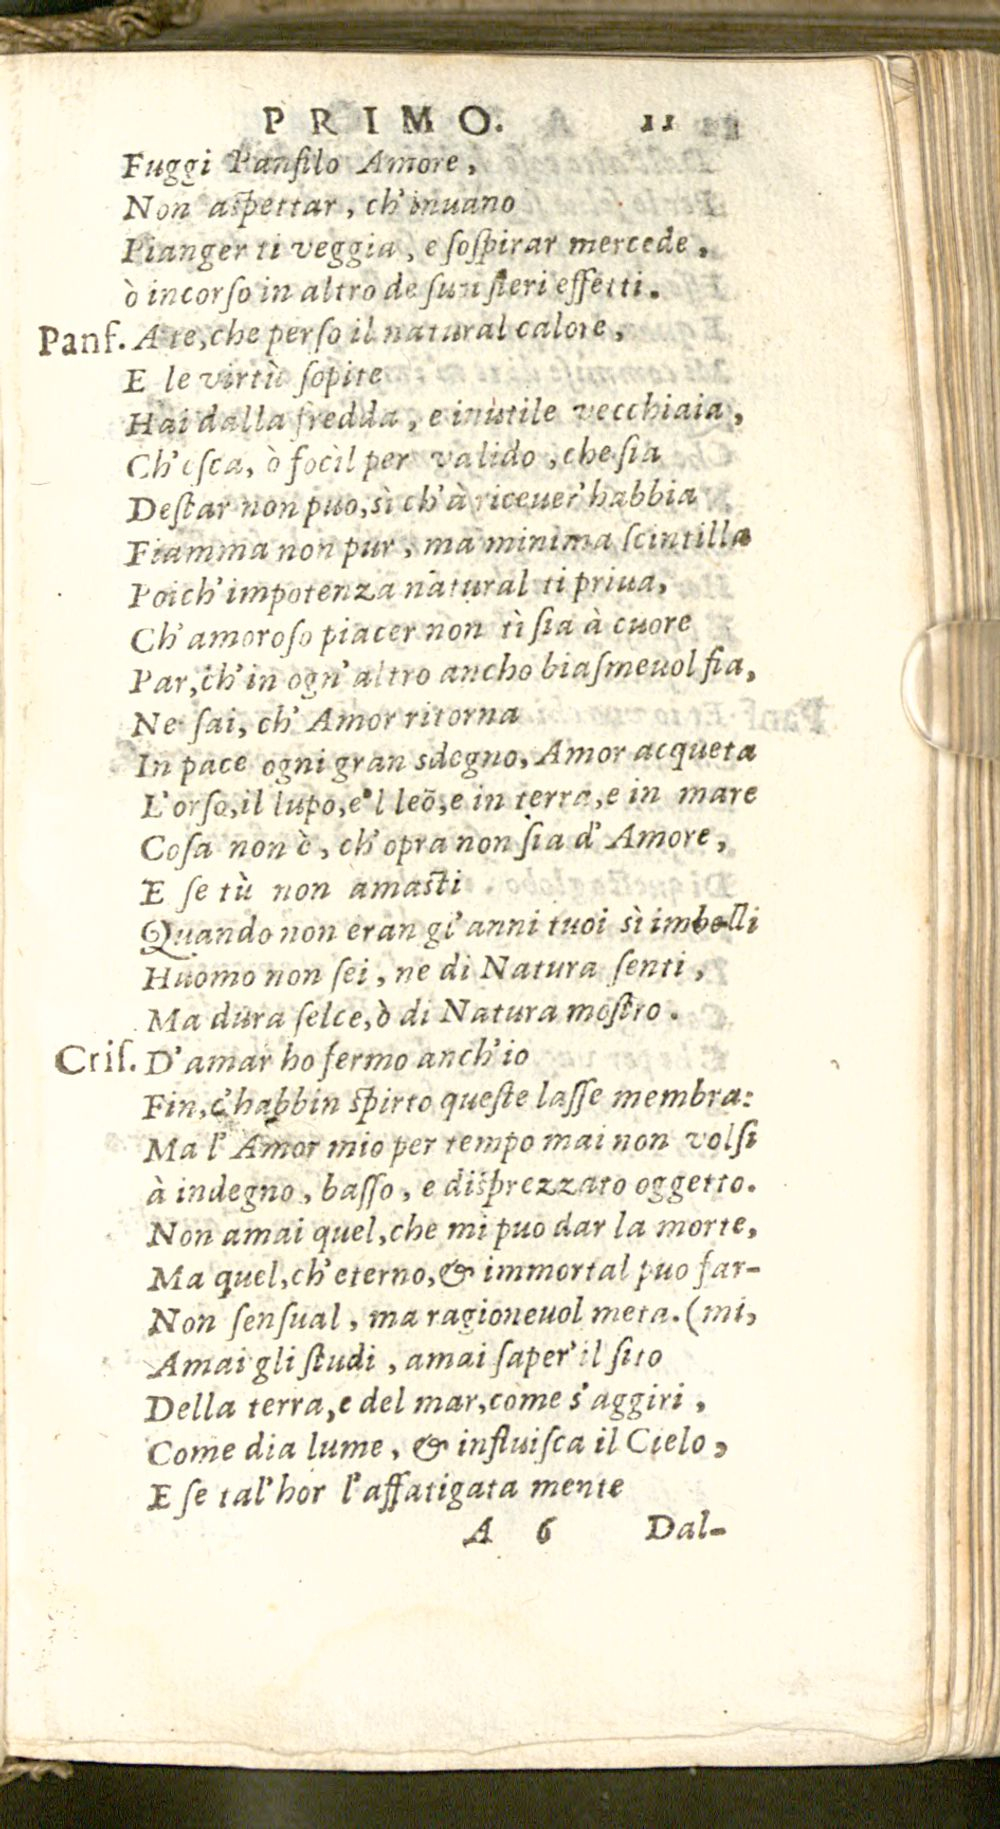 PRIMO. 11
Fuggi Panfilo Amore,
Non aspettar, ch'inuano
Pianger ti veggia, e sospirar mercede,
ò incorso in altro de suu fieri effetti.
Panf. A te, che perso il natural calore,
E le virtù sopite
Hai dalla fredda, e inutile vecchiaia,
Ch'esca, ò focìl per valido, che sia
Destar non puo, sì ch'à riceuer' habbia
Fiamma non pur, ma minima scintilla
Poich'impotenza natural ti priua,
Ch'amoroso piacer non tì sia à cuore
Par, ch'in ogn'altro ancho biasmeuol sia,
Ne sai, ch'Amor ritorna
In pace ogni gran sdegno, Amor acqueta
L'orso, il lupo, e'l leō, e in terra, e in mare
Cosa non è, ch'opra non sia d'Amore,
E se tù non amasti
Quando non eran gl'anni tuoi sì imbelli
Huomo non sei, ne di Natura senti,
Ma dura selce, ò di Natura mostro.
Cris. D'amar ho fermo anch'io
Fin, c'habbin spirto queste lasse membra:
Ma l'Amor mio per tempo mai non volsi
à indegno, basso, e disprezzato oggetto.
Non amai quel, che mi puo dar la morte,
Ma quel, ch'eterno, & immortal puo far-
Non sensual, ma ragioneuol meta. (mi,
Amai gli studi, amai saper'il sito
Della terra, e del mar, come s'aggiri,
Come dia lume, & influisca il Cielo,
E se tal'hor l'affatigata mente
A 6 Dal-